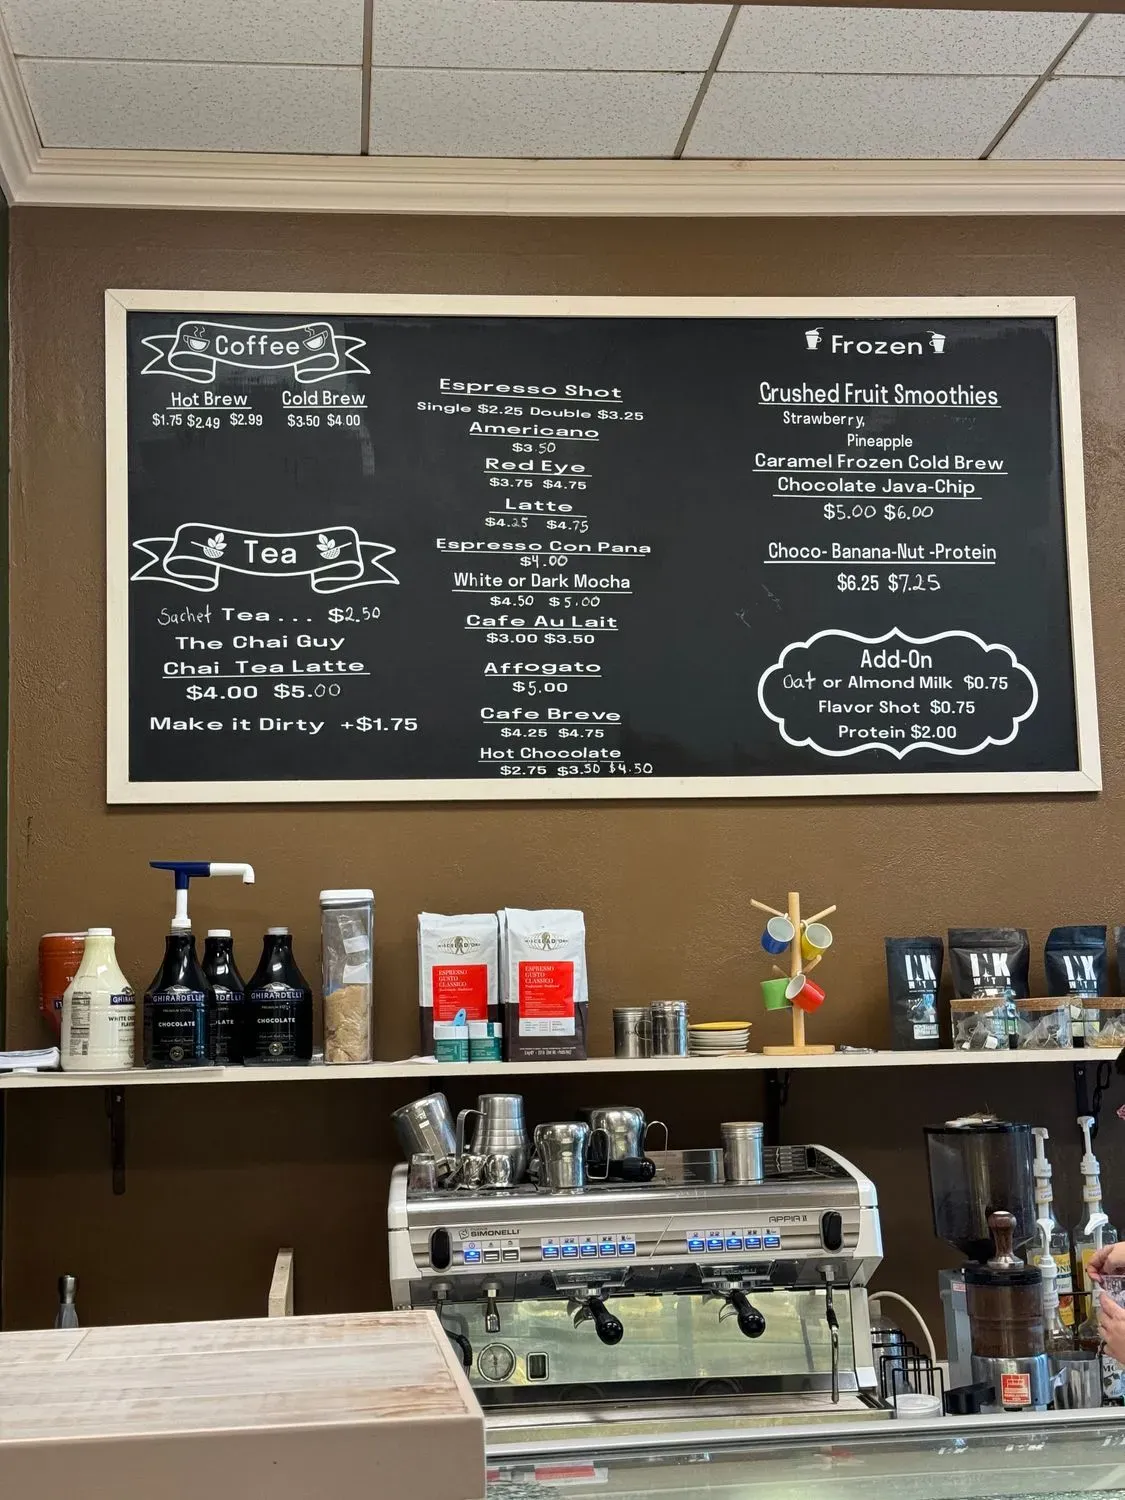 Coffee
Hot Brew
$1.75 $2.49 $2.99
Cold Brew
$3.50 $4.00
Tea
Sachet Tea... $2.50
The Chai Guy
Chai Tea Latte
$4.00 $5.00
Make it Dirty +$1.75
Espresso Shot
Single $2.25 Double $3.25
Americano
$3.50
Red Eye
$3.75 $4.75
Latte
$4.25 $4.75
Espresso Con Pana
$4.00
White or Dark Mocha
$4.50 $5.00
Cafe Au Lait
$3.00 $3.50
Affogato
$5.00
Cafe Breve
$4.25 $4.75
Hot Chocolate
$2.75 $3.50 $4.50
Frozen
Crushed Fruit Smoothies
Strawberry,
Pineapple
Caramel Frozen Cold Brew
Chocolate Java-Chip
$5.00 $6.00
Choco-Banana-Nut-Protein
$6.25 $7.25
Add-On
Oat or Almond Milk $0.75
Flavor Shot $0.75
Protein $2.00
GHIRARDELLI
CHOCOLATE
GHIRARDELLI
CHOCOLATE
ESPRESSO
GUSTO
CLASSICO
ESPRESSO
GUSTO
CLASSICO
SIMONELLI
APPIA II